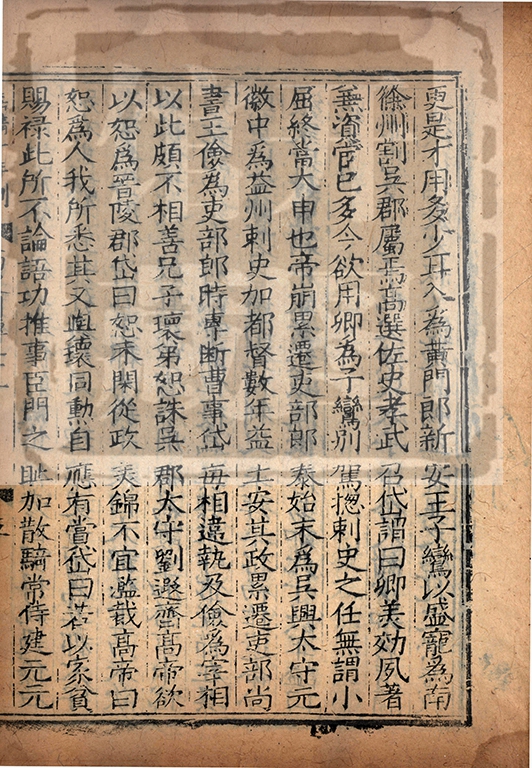 更是才用多少耳入為黃門郎新安王子鸞以盛寵為南
徐州割吳郡屬焉高選佐史孝武召岱謂曰卿美効夙著
兼資宦已多今欲用卿為子鸞別駕揔刺史之任無謂小
屈終當大申也帝崩累遷吏部郎泰始末為吳興太守元
徽中為益州刺史加都督數年益土安其政累遷吏部尚
書王儉為吏部郎時專斷曹事岱每相違執及儉為宰相
以此頗不相善兄子瓌弟恕誅吳郡太守劉遐齊高帝欲
以恕為晉陵郡岱曰恕未閑從政美錦不宜濫裁高帝曰
恕為人我所悉其又與瓌同勳自應有賞岱曰若以家貧
賜祿此所不論語功推事臣門之恥加散騎常侍建元元